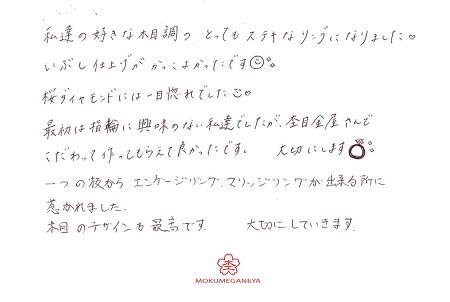 私達の好きな木目調の とってもステキなリングになりました♡
いぶし仕上げがかっこよかったです☺
桜ダイヤモンドには一目惚れでした☺
最初は指輪に興味のない私達でしたが、杢目金屋さんで
こだわって作ってもらえて良かったです。 大切にします
一つの板から エンゲージリング、マリッジリングが出来る所に
惹かれました.
木目のデザインも最高です. 大切にしていきます.
杢
MOKUMEGANEYA